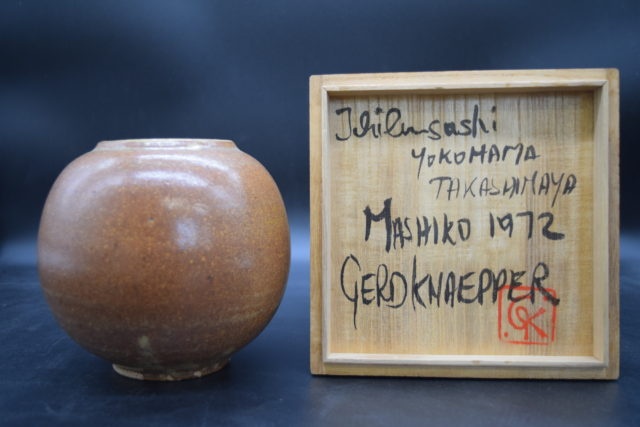 YOKOHAMA
TAKASHIMAYA
MASHIKO 1972
GERD KNAEPPER
GK